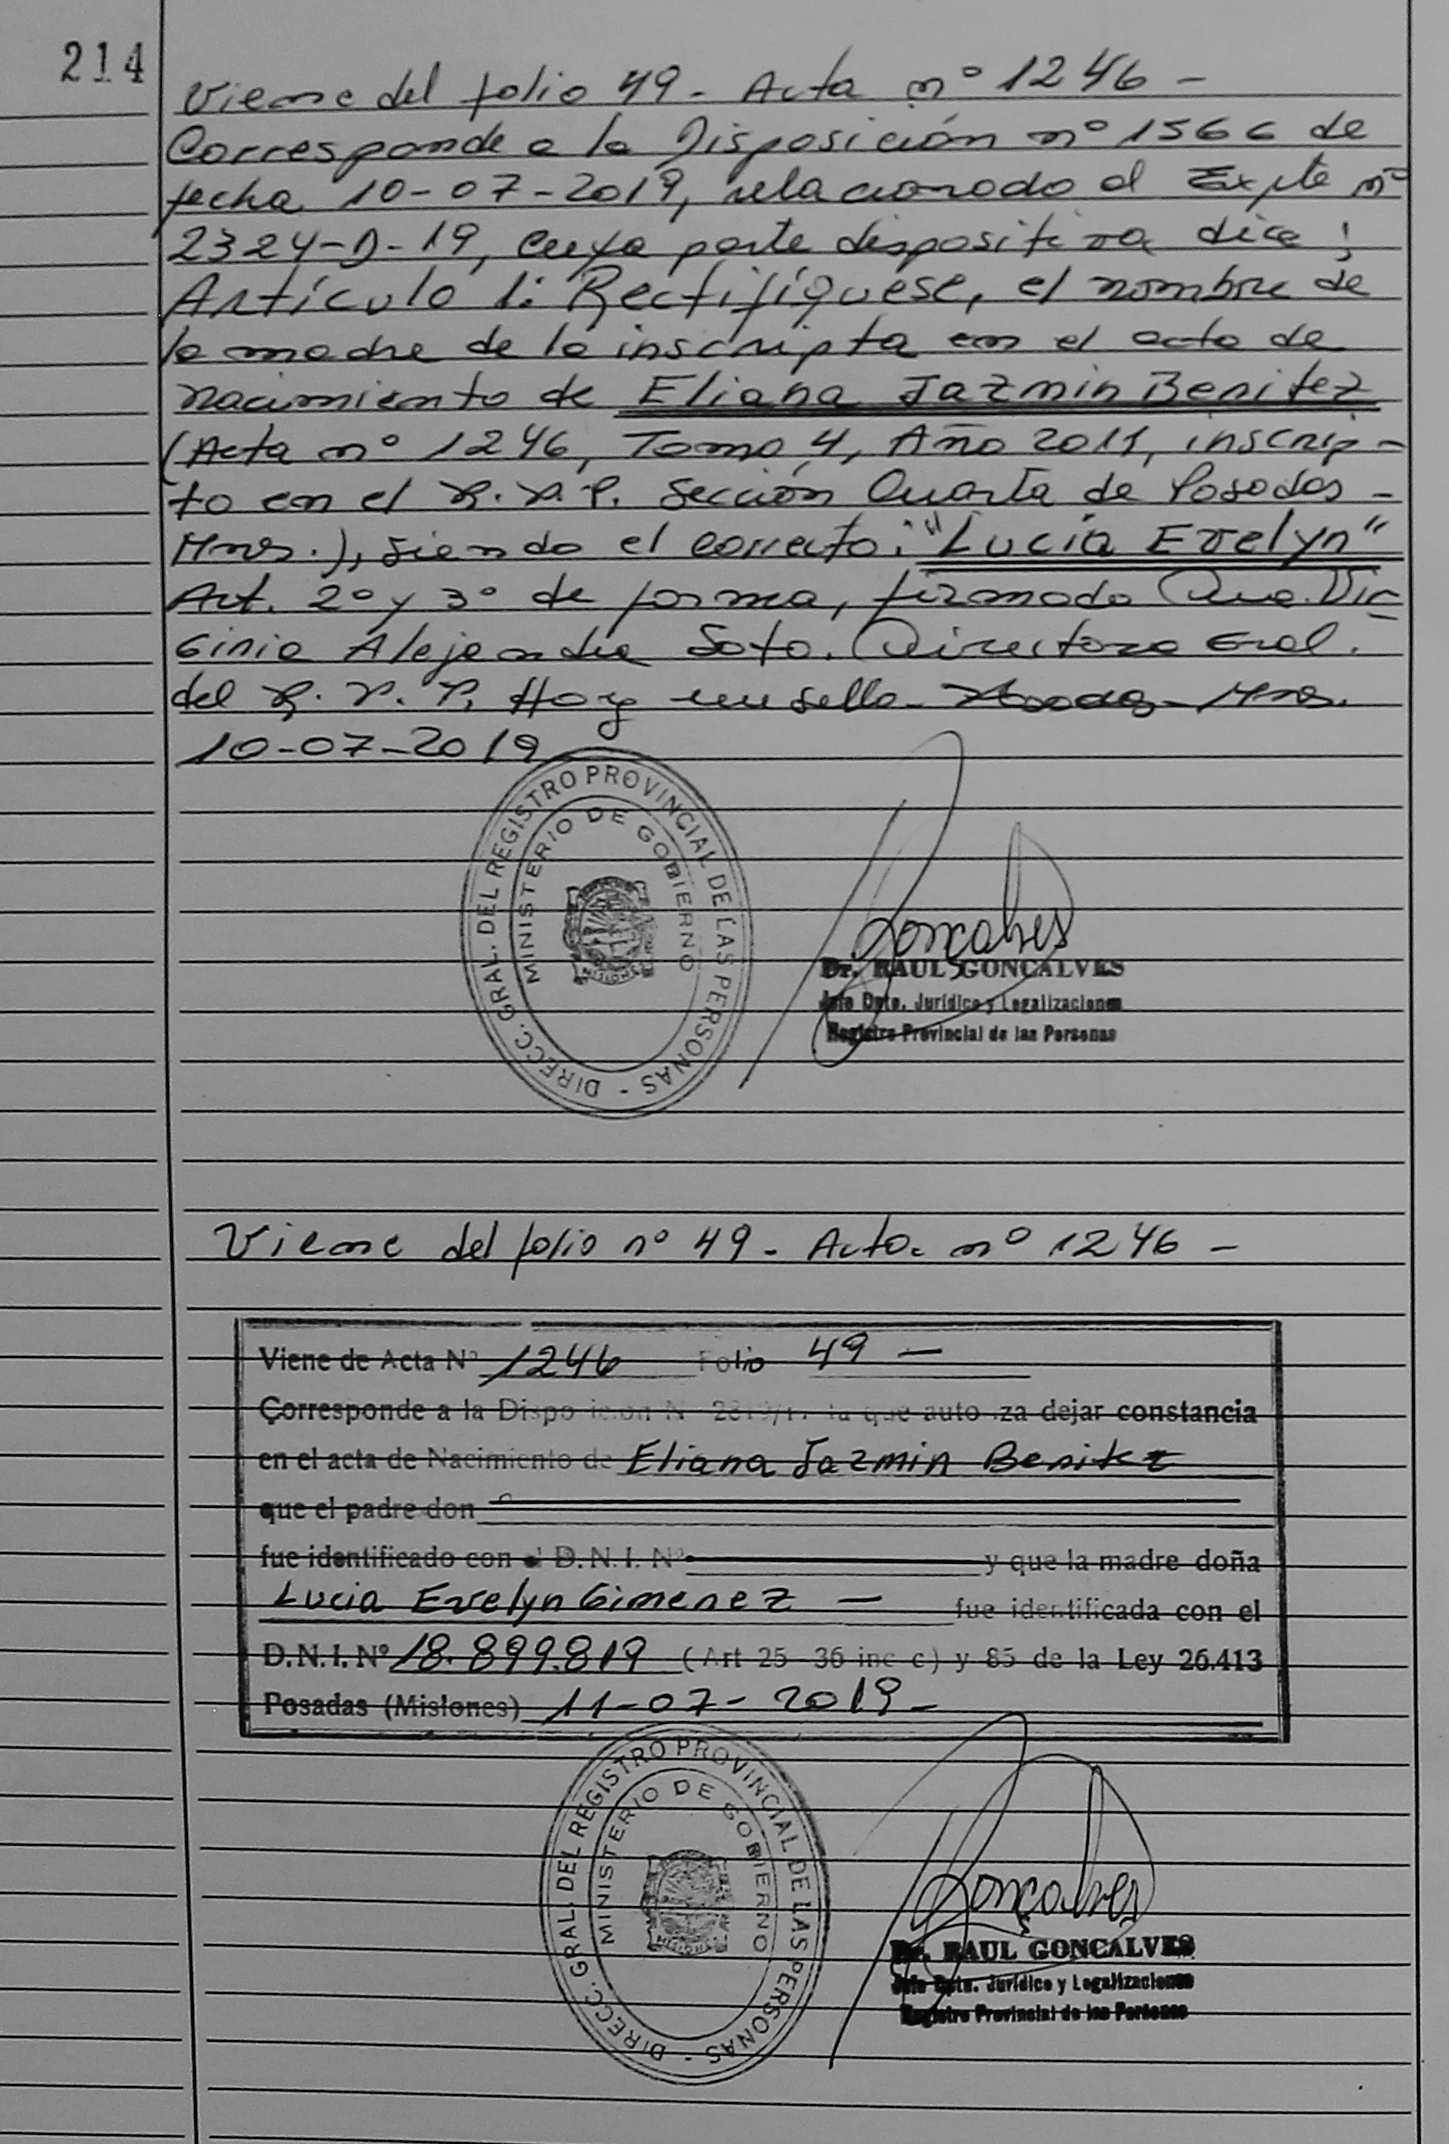 214
Viene del folio 49 - Acta nº 1246 -
Corresponde a la Disposición nº 1566 de
fecha 10-07-2019, relacionado al Expte nº
2324-D-19, cuya parte dispositiva dice:
Artículo 1: Rectifíquese, el nombre de
la madre de la inscripta en el acta de
nacimiento de Eliana Jazmin Benitez
(Acta nº 1246, Tomo 4, Año 2011, inscrip-
to en el R.P.P. Sección Cuarta de Posadas -
Mnes.), siendo el correcto: "Lucía Evelyn"
Art. 2º y 3º de forma, firmado Vir-
ginia Alejandra Soto. Directora Gral.
del R.P.P. Hay un sello - Posadas - Mnes.
10-07-2019
DIRECC. GRAL. DEL REGISTRO PROVINCIAL DE LAS PERSONAS -
MINISTERIO DE GOBIERNO
MISIONES
Goncalves
Dr. RAUL GONCALVES
Jefe Dpto. Jurídico y Legalizaciones
Registro Provincial de las Personas
Viene del folio nº 49 - Acta nº 1246 -
Viene de Acta Nº 1246 Folio 49 -
Corresponde a la Disposicion N 2819/1 la que autoriza dejar constancia
en el acta de Nacimiento de Eliana Jazmin Benitez
que el padre don
fue identificado con el D.N.I. Nº y que la madre doña
Lucia Evelyn Gimenez - fue identificada con el
D.N.I. Nº 18.899.819 (Art 25 - 36 inc c) y 85 de la Ley 26.413
Posadas (Misiones) 11-07-2019 -
DIRECC. GRAL. DEL REGISTRO PROVINCIAL DE LAS PERSONAS -
MINISTERIO DE GOBIERNO
MISIONES
Goncalves
Dr. RAUL GONCALVES
Jefe Dpto. Jurídico y Legalizaciones
Registro Provincial de las Personas